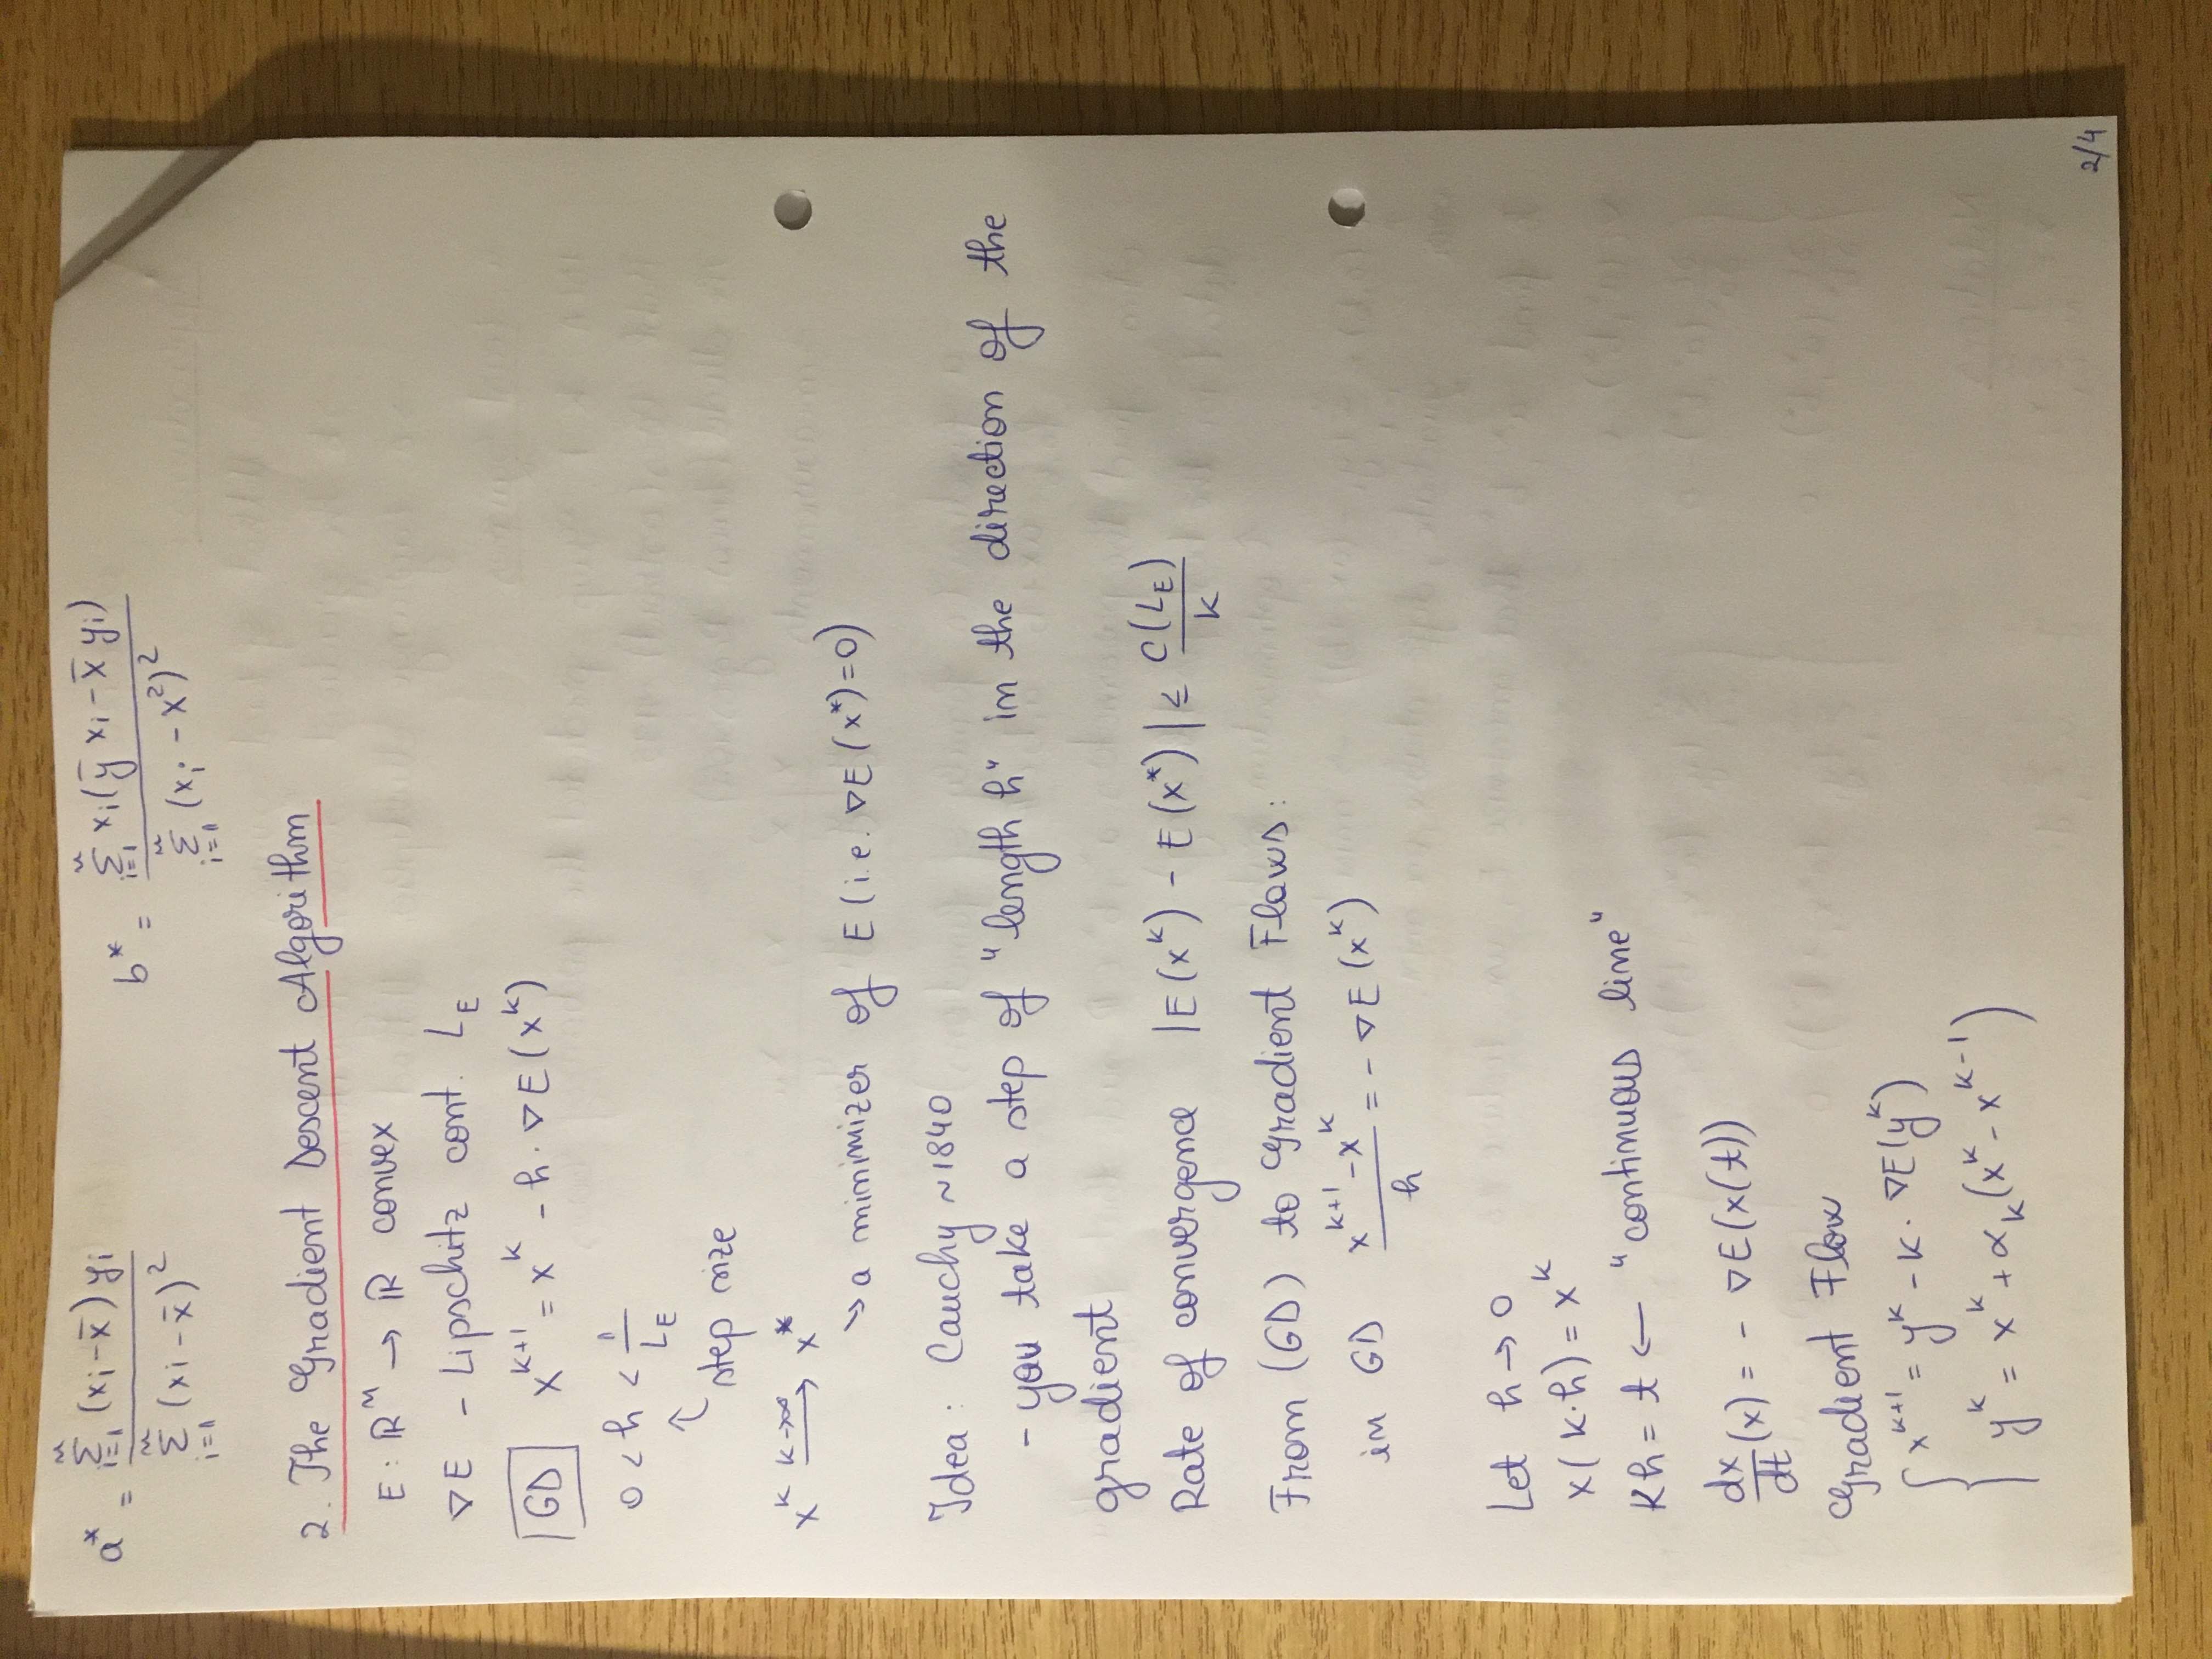 a* = \frac{\sum_{i=1}^{n} (x_i - \bar{x}) y_i}{\sum_{i=1}^{n} (x_i - \bar{x})^2}    b* = \frac{\sum_{i=1}^{n} x_i (\bar{y} x_i - \bar{x} y_i)}{\sum_{i=1}^{n} (x_i - x^2)^2}
2. The Gradient Descent Algorithm
E : ℝ^n → ℝ convex
∇E - Lipschitz cont. L_E
GD x^{k+1} = x^k - h · ∇E(x^k)
0 < h < \frac{1}{L_E}
↑
step size
x^k \xrightarrow{k→∞} x*
↘ a minimizer of E (i.e. ∇E(x*)=0)
Idea : Cauchy ~1840
- you take a step of "length h" in the direction of the
gradient
Rate of convergence |E(x^k) - E(x*)| ≤ \frac{C(L_E)}{k}
From (GD) to Gradient Flows:
in GD \frac{x^{k+1} - x^k}{h} = - ∇E(x^k)
Let h → 0
x(k·h) = x^k
kh = t ← "continuous line"
\frac{dx}{dt}(x) = - ∇E(x(t))
Gradient Flow
{ x^{k+1} = y^k - k · ∇E(y^k)
y^k = x^k + α_k (x^k - x^{k-1})
2/4